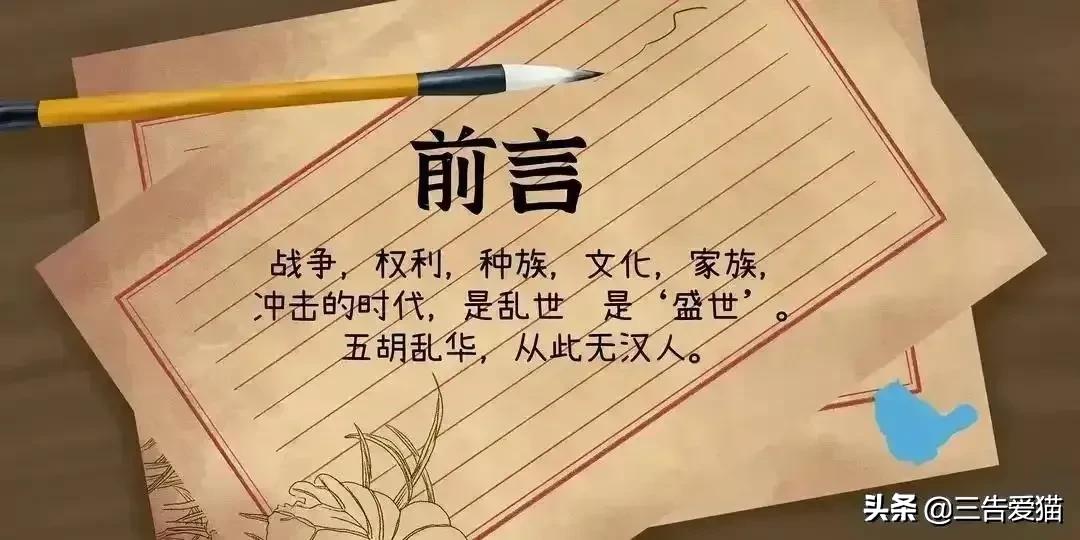 前言
战争，权利，种族，文化，家族，
冲击的时代，是乱世 是‘盛世’。
五胡乱华，从此无汉人。
头条 @三告爱猫